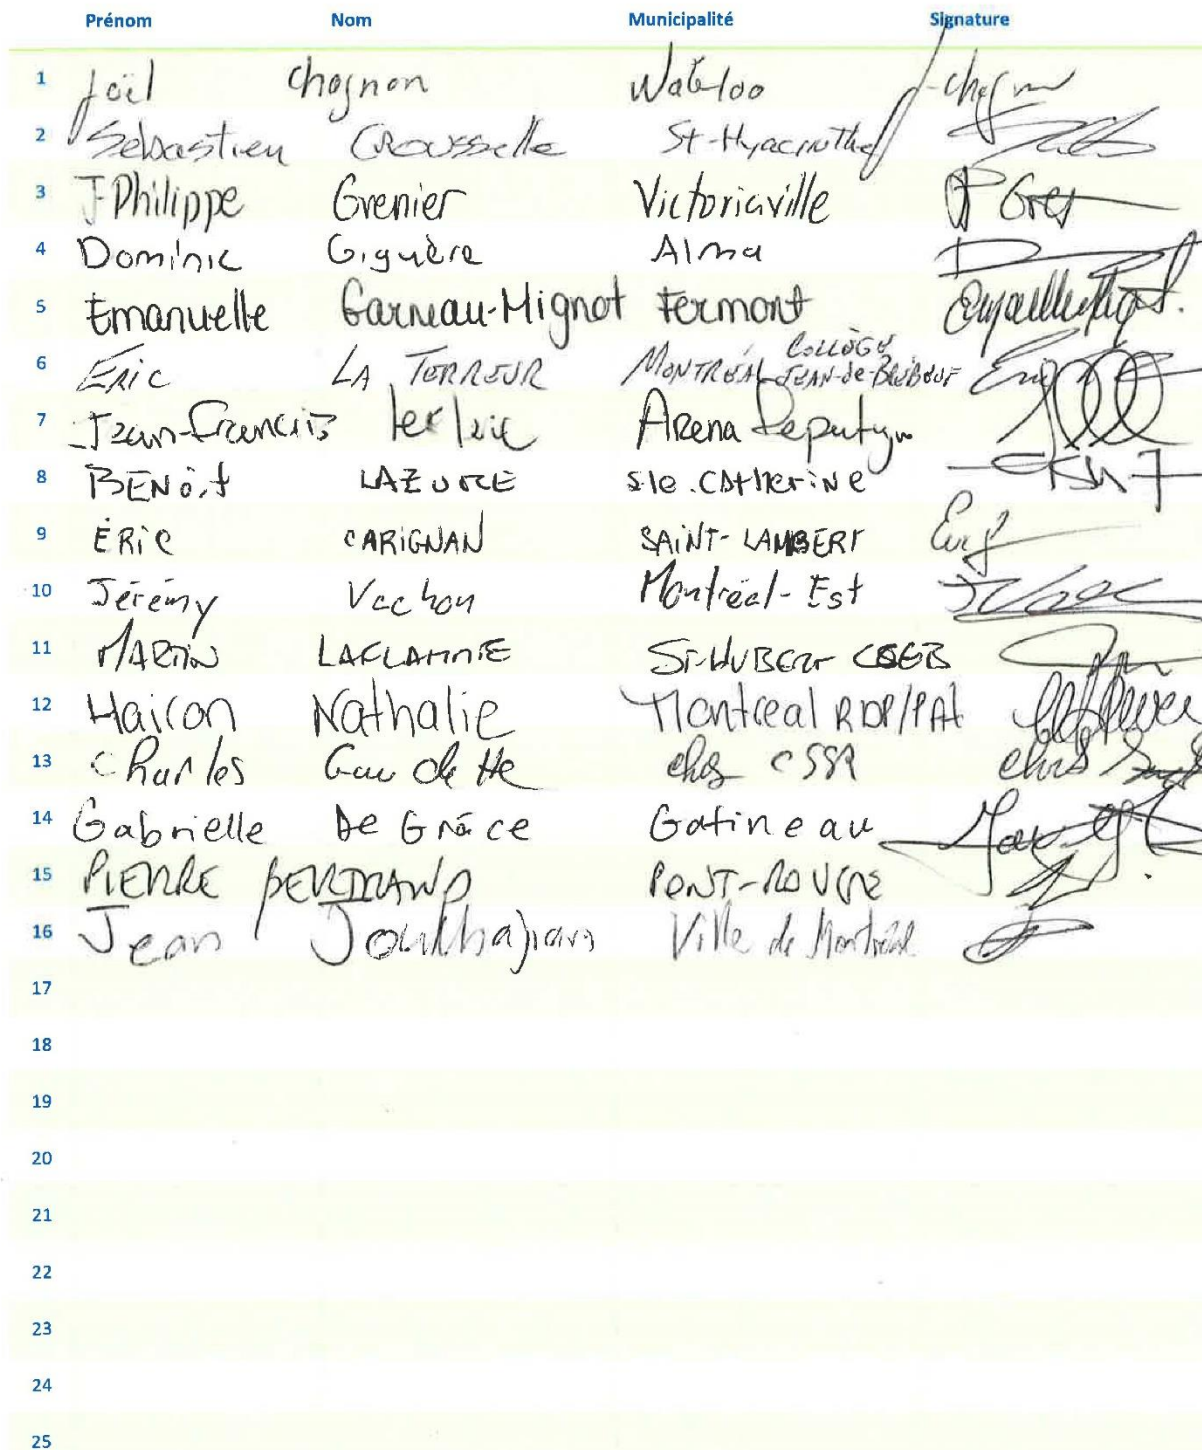 Prénom Nom Municipalité Signature
1 Joël Chagnon Waterloo
2 Sébastien Crousselle St-Hyacinthe
3 J-Philippe Grenier Victoriaville
4 Dominic Giguère Alma
5 Emanuelle Garneau-Mignot Fermont
6 Éric LA TERREUR MONTRÉAL COLLÈGE JEAN-de-BRÉBEUF
7 Jean-Francois Leclair Arena
8 BENOit LAZURE Ste. CAtherine
9 ÉRiC CARIGNAN SAiNT-LAMBERT
10 Jérémy Vachon Montréal-Est
11 MARTIN LAFLAMME ST-HUBERT
12 Haicon Nathalie Montreal RDP/PAt
13 Charles Gaudette chez
14 Gabrielle De Grâce Gatineau
15 PIERRE BERTRAND PONT-ROUGE
16 Jean Ville de Montréal
17
18
19
20
21
22
23
24
25